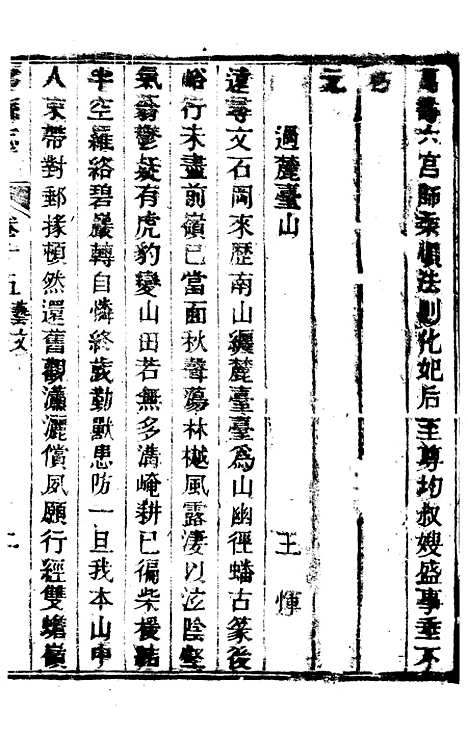 六宮師柔順法則化妃后至尊均叔嫂盛事垂不
朽
元
過麓臺山　王惲
遠尋文石岡來歷南山纚麓臺臺為山幽徑蟠古篆後
峪行未盡前嶺已當面秋聲蕩林樾風露淒以泫陰壑
氣蓊鬱疑有虎豹變山田若無多溝崦耕已徧柴援結
半空羅絡碧巖轉自憐終歲勤獸患防一旦我本山中
人束帶對郵掾頓然還舊觀瀟灑償夙願行經雙蟾嶺
卷十五藝文